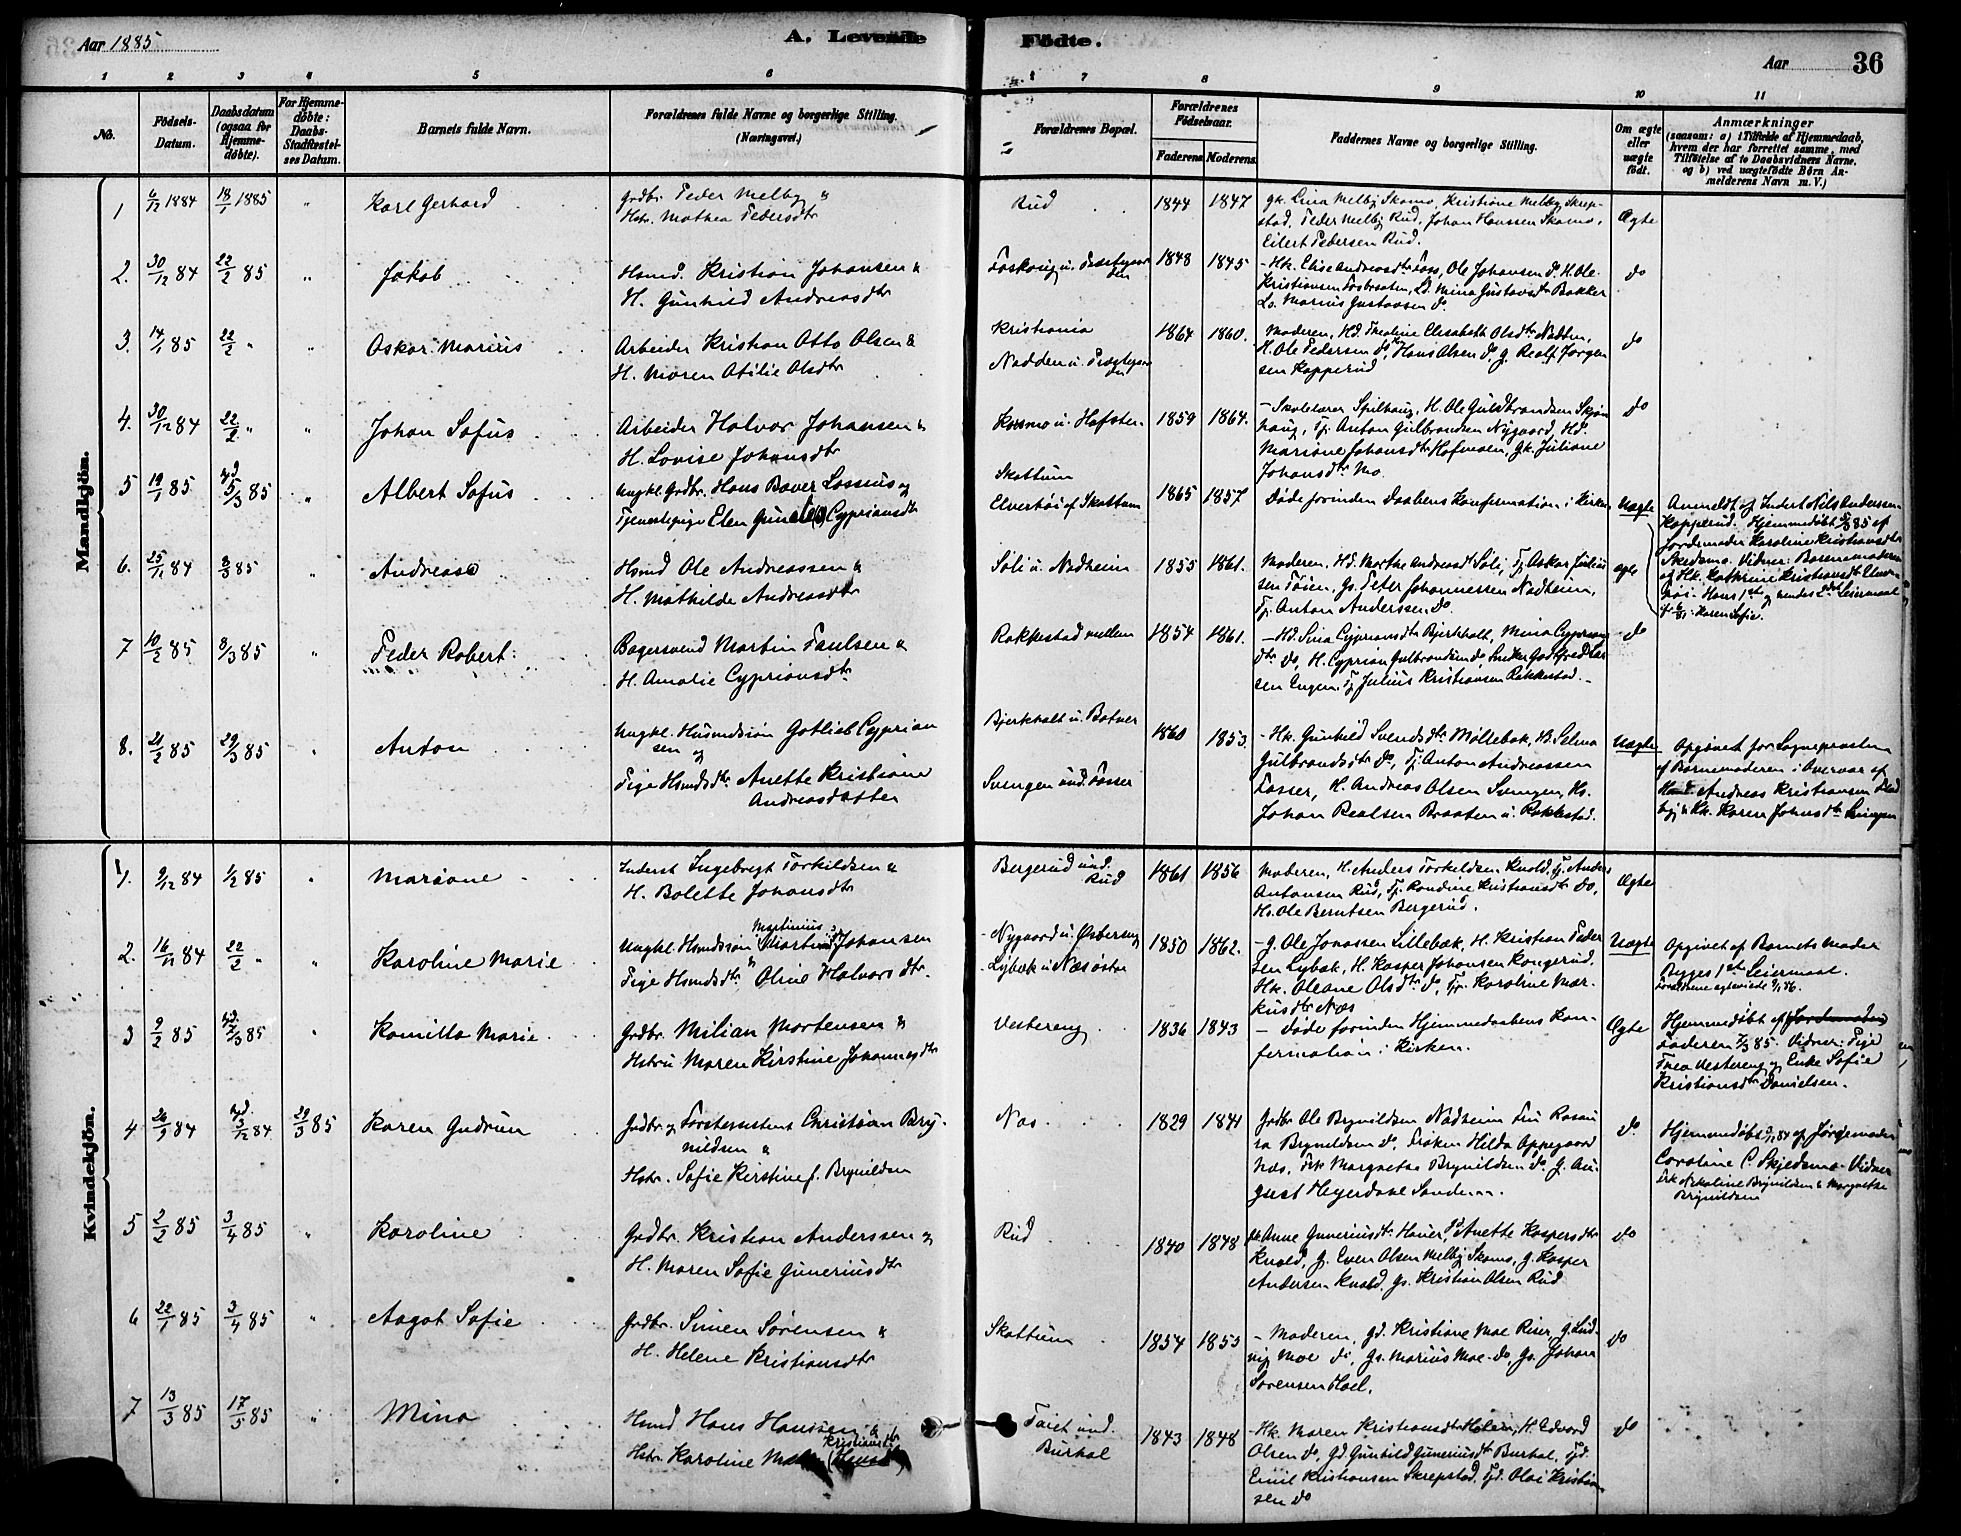 Aar 1885
A. Levende Fødte.
Aar 36
1 2 3 4 5 6 6 7 8 9 10 11
No.
Fødsels-Datum.
Daabsdatum (ogsaa for Hjemme-døbte).
For Hjemme-døbte: Daabs-Stadfæstel-ses Datum.
Barnets fulde Navn.
Forældrenes fulde Navne og borgerlige Stilling. (Næringsvei.)
Forældrenes Bopæl.
Forældrenes Fødselsaar.
Faderens Moderens
Faddernes Navne og borgerlige Stilling.
Om ægte eller uægte født.
Anmærkninger
(saasom: a) i Tilfælde af Hjemmedaab,
hvem der har forrettet samme, med
Tilføielse af to Daabsvidners Navne.
og b) ved uægtefødte Børn An-
melderens Navn m. V.)
Mandkjön.
1 6/12 1884 18/1 1885 " Karl Gerhard Grdbr. Peder Melby &
Hstr. Mathea Pedersdtr
Rud 1844 1847 gk. Lina Melby Skamo, Kristiane Melby Skrep-
stad, Peder Melby Rud, Johan Hanssen Skamo,
Eilert Pedersen Rud. Ægte
2. 30/12 84 22/2 85 " Jakob Hsmd. Kristian Johansen &
H. Gunhild Andreasdtr
1848 1845 - Hk. Elise Andreasdtr Foss, Ole Johansen do. H. Ole
Kristiansen Fosbraaten, Ld. Mina Gustavsdtr Bakker
Ls. Marius Gustavsen do do
3. 14/1 85 22/2 " " Oskar Marius Arbeider Kristian Otto Olsen &
H. Maren Otilie Olsdtr
Kristiania
Nadden u. Præstegaarden
1864 1860. Moderen, Hd. Thealine Elisabeth Olsdtr Nadden,
H. Ole Pedersen do, Hans Olsen do, g. Realf Jørgen
sen Kopperud do
4. 30/12 84 22/2 " " Johan Sofus Arbeider Halvor Johansen &
H. Lovise Johansdtr
Kosmo u. Hafsten 1859 1864. - Skolelærer Spilhaug, H. Ole Guldbrandsen Skjøn
haug, Tj. Anton Gulbrandsen Nygaard, Hd.
Mariane Johansdtr Hofmoen, Gk. Juliane
Johansdtr Mo do
5 19/1 85 5/3 85 " Albert Sofus Ungkl. Grdbr. Hans Baver Lossius og
Tjenestepige Elen Gunelie Cypriansdtr
Skattum
Elvertøi af Skattum
1865 1857. Døde forinden Daabens Konfirmation i Kirken Uægte
Anmeldt af Inderst Nils Anderssen
Kopperud. Hjemmedøbt 5/3 85 af
Jordemoder Karoline Kristiansdtr
Skedsmo. Vidner: Barnemoderen
og Hk. Kathrine Kristiansdtr Elver-
tøi. Hans 1ste og hendes 2det Leiermaal
Karen Sofie.
6. 25/11 84 8/3 85 " Andreas Hsmd Ole Andreassen &
H. Mathilde Andreasdtr
Løli u. Nadheim 1855 1861. Moderen, Hd. Marthe Andreasdtr Løli, Tj. Oskar Julius
sen Føien, Gs. Peter Johannessen Nadheim,
Tj. Anton Anderssen do. ægte
7 10/2 85 8/3 85 " Peder Robert Bagersvend Martin Paulsen &
H. Amalie Cypriansdtr
Rakkestad mellem 1854 1861. - Hd. Lina Cypriansdtr Bjerkholt, Mina Cyprians
dtr do, H. Cyprian Gulbrandsen do, Snedker Godtfred Lar
sen Engen, Tj. Julius Kristiansen Rakkestad. do
8. 21/2 85 29/3 85 " Anton Ungkl. Husmdssøn Gotlieb Cyprian
sen og
Pige Hsmdsdtr. Anette Kristiane
Andreasdatter
Bjerkholt u. Botner
Svingen und. Fosser
1860 1853. - Hk. Gunhild Svendsdtr Møllebæk, Hd. Selma
Gulbrandsdtr do, Tj. Anton Andreassen
Fosser, H. Andreas Olsen Svingen, Hs.
Johan Realsen Braaten u. Rakkestad. Uægte
Opgivet for Sognepresten
af Barnemoderen i Overvær af
Andreas Kristiansen
Hk. Karen Johnsdtr Svingen
Kvindekjön.
1. 9/12 84 1/2 85 " Mariane Inderst Ingebregt Torkildsen &
H. Bolette Johansdtr
Bergerud und.
Rud
1861 1856 Moderen, H. Anders Torkildsen Knold, Tj. Anders
Antonsen Rud, Tj. Randine Kristiansdtr do,
Hs. Ole Berntsen Bergerud. Ægte
2. 16/11 84 22/2 " " Karoline Marie Ungkl. Hsmdssøn Martinius Johansen
Pige Hsmdsdtr. Oline Halvorsdtr.
- Nygaard u. Østereng
- Lybæk u. Næs østre
1850 1862. - g. Ole Jonassen Lillebæk, H. Kristian Peder
sen Lybæk, H. Kasper Johansen Kongerud,
Hk. Oleane Olsdtr do, Tj. Karoline Mar-
kusdtr Næs Uægte
Opgivet af Barnets Moder
Begges 1ste Leiermaal.
Forældrene ægteviede
3 9/2 85 2/3 85 " Kamilla Marie Grdbr. Milian Mortensen &
Hstru Maren Kirstine Johannesdtr
Vestereng 1836 1843 - Døde forinden Hjemmedaabens Kon-
firmation i Kirken. Ægte
Hjemmedøbt af Jordemoder
Faderen 2/3 85. Vidner: Pige
Thea Vestereng og Enke Sofie
Kristiansdtr Danielsen.
4 26/9 84 3/12 84 29/3 85 Karen Gudrun Grdbr. og Forstassistent Christian Bry-
nildsen &
Hstr. Sofie Kirstine f. Brynildsen
Næs 1829 1841 Grdbr. Ole Brynildsen Nadheim, Fru Rosau
ra Brynildsen do, Frøken Hilda Oppegaard
Næs, Frk. Margrethe Brynildsen do, g. Au-
gust Heyerdahl Sanden. do.
Hjemmedøbt 3/12 84 af Jordemoder
Caroline C. Skjedsmo. Vidner
Frk. Nikoline Brynildsen & Margrethe
Brynildsen
5 2/2 85 3/4 85 " Karoline Grdbr. Kristian Anderssen og
H. Maren Sofie Guneriusdtr
Rud 1840 1848 Gk. Anne Guneriusdtr Haver, Gd. Anette Kaspersdtr
Knold, g. Even Olsen Melby Skamo, g. Kasper
Andersen Knold, gs. Kristian Olsen Rud do
6 22/1 85 3/4 85 " Aagot Sofie Grdbr. Simen Sørensen &
H. Helene Kristiansdtr
Skattum 1854 1853 - Moderen, gd. Kristiane Moe Riser, g. Lud-
vig Moe do, Gs. Marius Moe do, Gs. Johan
Sørensen Hoel. do
7 13/3 85 17/5 85 " Mina Hsmd Hans Hanssen &
Hstr. Karoline Kristiansdtr
Føiet und.
Burhol
1843 1848 - Hk. Maren Kristiansdtr Holen, H. Edvard
Olsen do, Gd. Gunhild Guneriusdtr Burhol, Tjd.
Emil Kristiansen Skrepstad, Tjd. Olai Kristian-
sen do do